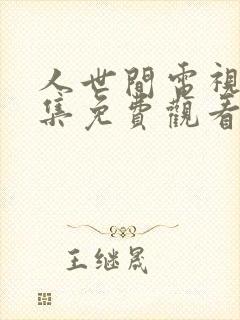 人世間電視
集免費觀看
王继晟